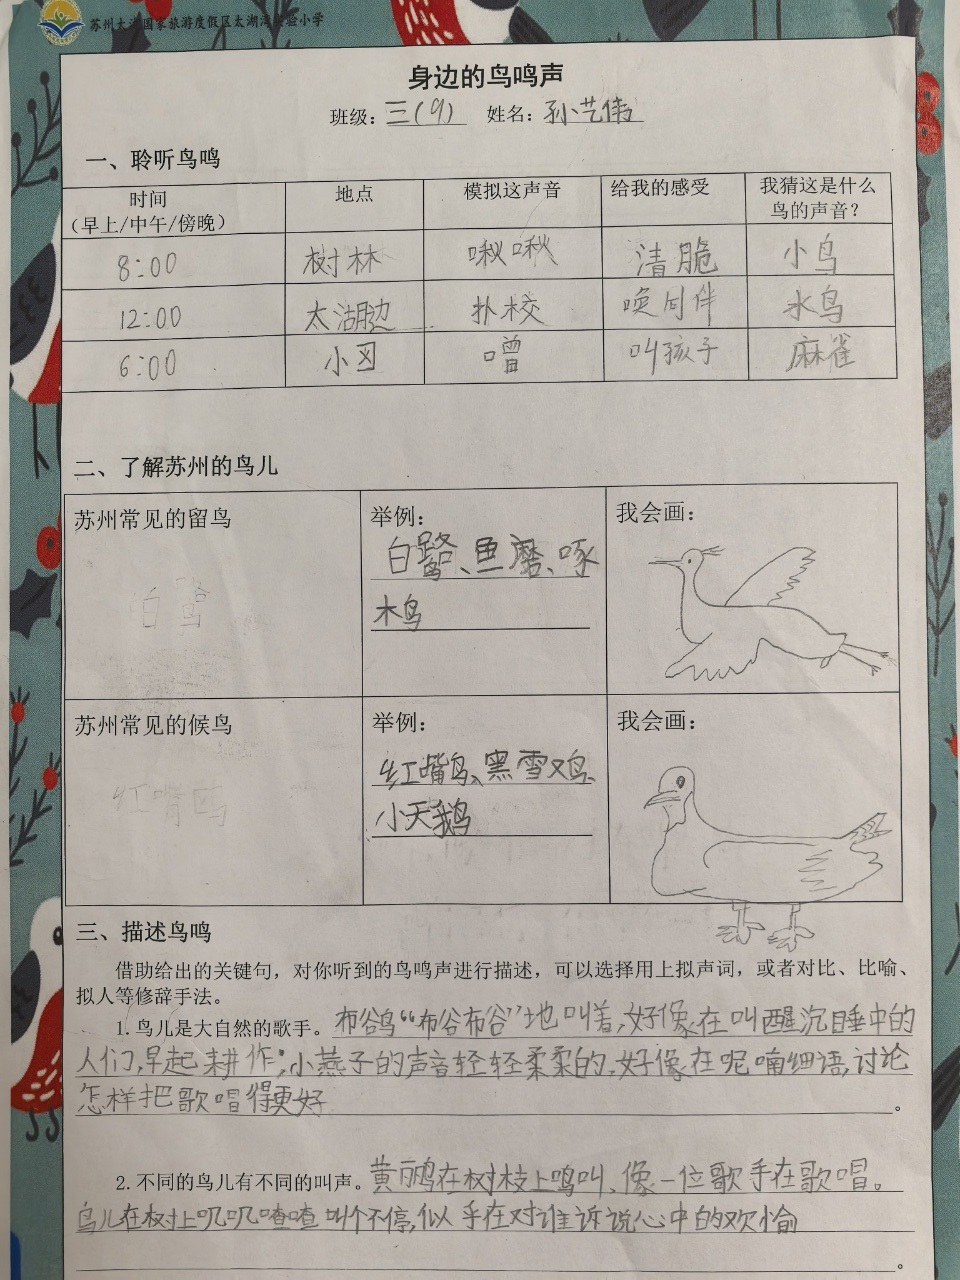 苏州太湖国家旅游度假区太湖湾实验小学
身边的鸟鸣声
班级：三(9) 姓名：孙艺伟
一、聆听鸟鸣
时间 地点 模拟这声音 给我的感受 我猜这是什么
（早上/中午/傍晚） 鸟的声音？
8:00 树林 啾啾 清脆 小鸟
12:00 太湖边 扑棱 唤同伴 水鸟
6:00 小区 噌 叫孩子 麻雀
二、了解苏州的鸟儿
苏州常见的留鸟 举例： 我会画：
白鹭、鱼鹰、啄
白鹭 木鸟
苏州常见的候鸟 举例： 我会画：
红嘴鸟、黑雪又鸟、
红嘴鸥 小天鹅
三、描述鸟鸣
借助给出的关键句，对你听到的鸟鸣声进行描述，可以选择用上拟声词，或者对比、比喻、
拟人等修辞手法。
1.鸟儿是大自然的歌手。布谷鸟“布谷布谷”地叫着，好像在叫醒沉睡中的
人们，早起耕作；小燕子的声音轻轻柔柔的，好像在呢喃细语，讨论
怎样把歌唱得更好。
2.不同的鸟儿有不同的叫声。黄鹂在树枝上鸣叫、像一位歌手在歌唱。
鸟儿在树上叽叽喳喳叫个不停，似乎在对谁诉说心中的欢愉
。